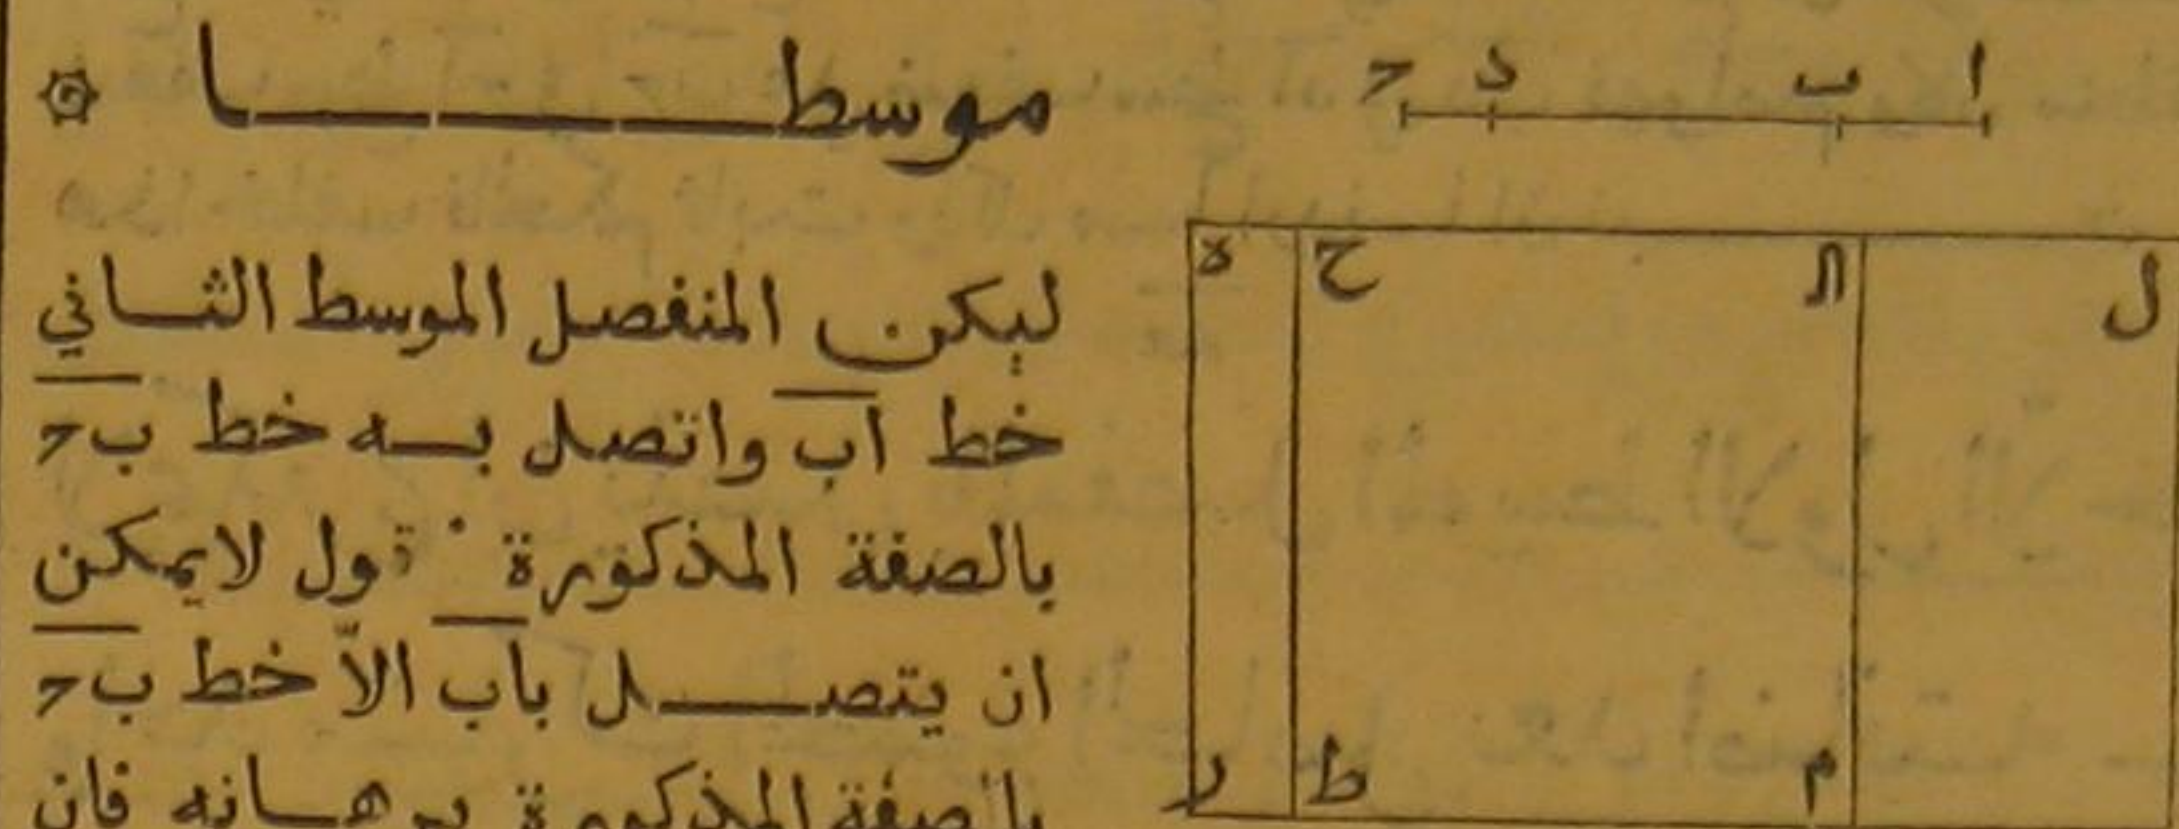 موسطا
ليكن المنفصل الموسط الثاني
خط اب واتصل به خط ب ح
بالصفة المذكورة قول لا يمكن
ان يتصل باب الاّ خط ب ح
بالصفة المذكورة برهانه فان
ا ب د ح
ل ح ه
م ط ر